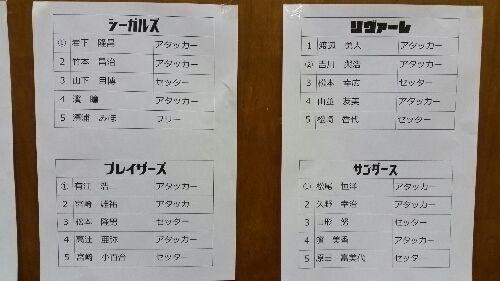 シーガルズ
① 岩下 隆昌 アタッカー
2 竹本 昌治 アタッカー
3 山下 自博 セッター
4 濱 瞳 アタッカー
5 澤浦 みほ フリー
ブレイザーズ
① 有江 浩二 アタッカー
2 宮崎 雄祐 アタッカー
3 松本 隆男 セッター
4 高辻 亜弥 アタッカー
5 宮崎 小百合 セッター
リヴァーレ
1 渡辺 美人 アタッカー
② 吉川 典浩 アタッカー
3 松本 幸広 セッター
4 山並 友美 アタッカー
5 松崎 香代 セッター
サンダース
① 松尾 恒洋 アタッカー
2 矢野 幸治 アタッカー
3 山形 努 セッター
4 濱 美香 アタッカー
5 原田 富美代 セッター